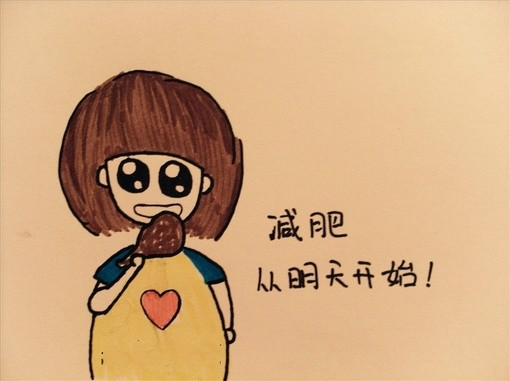 减肥
从明天开始!